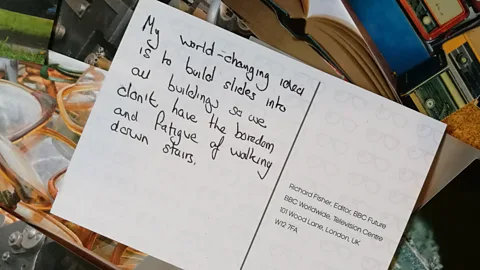 My world-changing idea
is to build slides into
all buildings so we
don't have the boredom
and fatigue of walking
down stairs.
Richard Fisher, Editor, BBC Future
BBC Worldwide, Television Centre
101 Wood Lane, London, UK
W12 7FA